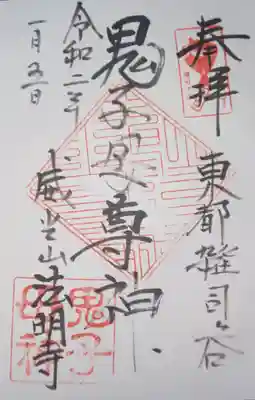 奉拝
東都雑司ヶ谷
鬼子母尊神
令和二年
一月五日
威光山法明寺
鬼子
母神